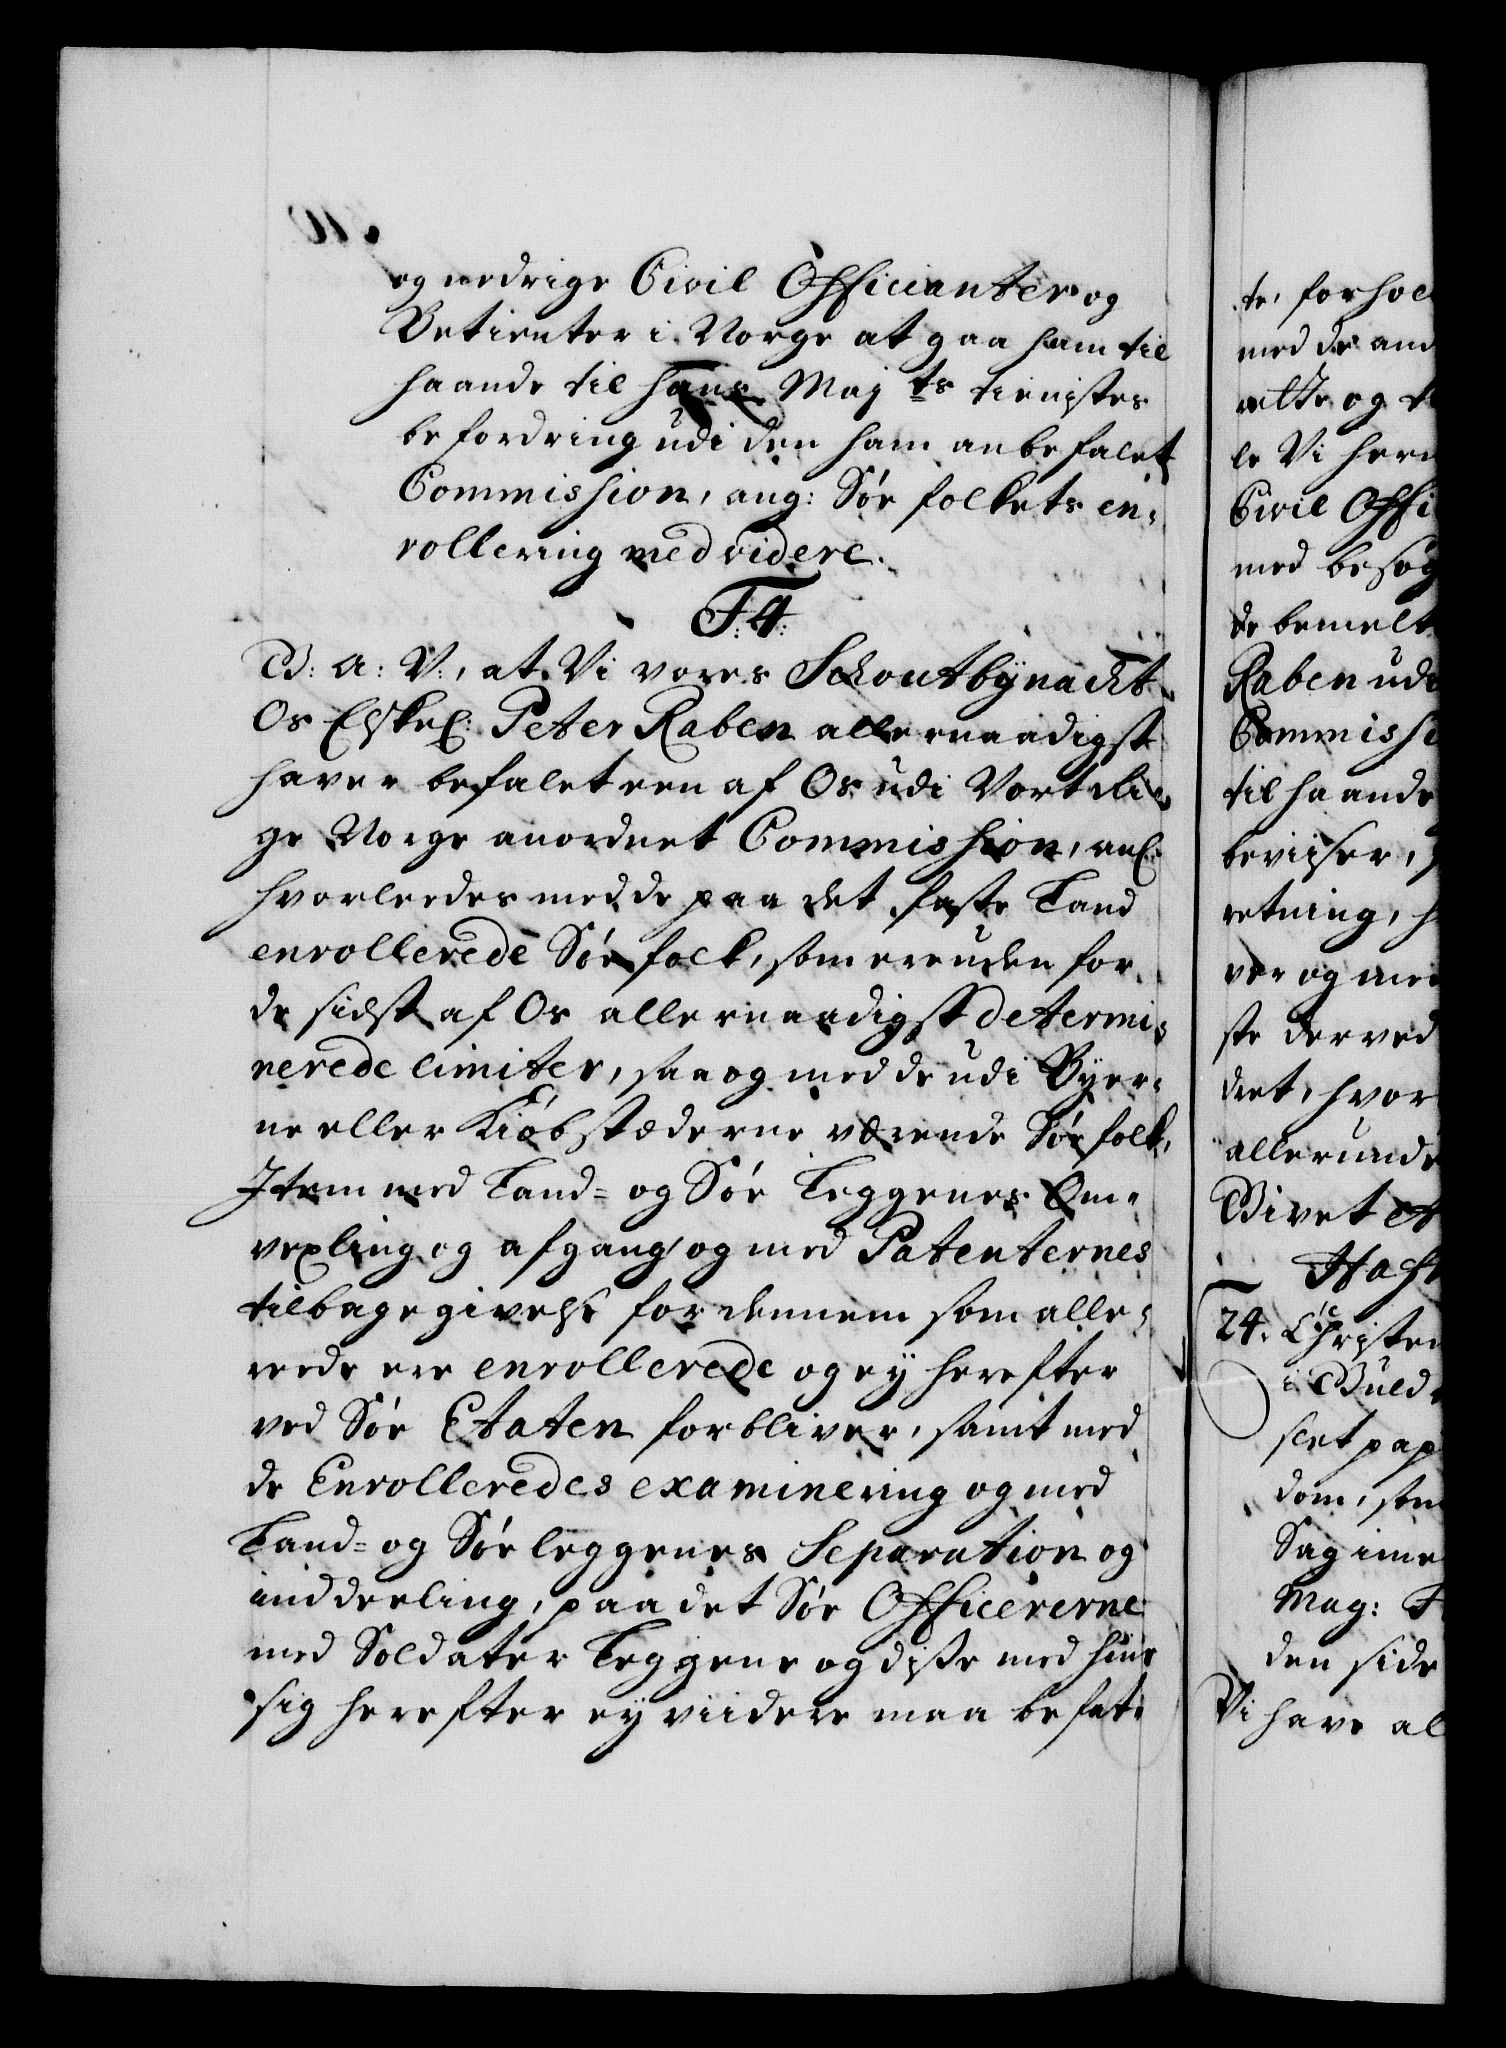 og nedrige Civil Officianter og
Betienter i Norge at gaa ham til
haande til Hans Maj ts tienistes
befordring udi den ham anbefalet
Commission, ang: Søe folkets en-
rollering med videre.
F. 4.
G: A: V:, at Vi vores Schoutbynacht
Os Elskel: Peter Raben allernaadigst
haver befalet een af Os udi Vort Ri-
ge Norge anordnet Commission, anl:
hvorledes med de paa det faste Land
enrollerede Søe folk, som ere uden for
de sidst af Os allernaadigst determi-
nerede limiter, saa og med de udi Byer-
ne eller Kiøbstæderne værende Søe folk,
Item med Land- og Søe Leggenes Om-
vexling og afgang og med Patenternes
tilbage givelse for dennem som alle-
rede ere enrollerede og ey herefter
ved Søe Etaten forbliver, samt med
de Enrolleredes examinering og med
Land- og Søe leggenes Separation og
inddeeling, paa det Søe Officererne
med Soldater Leggene og disse med hine
sig herefter ey viidere maa befat-
te, forhol
med de and
rette og
le Vi her
Civil Offi
med besøg
de bemelt
Raben udi
Commissi
til haande
beviiser,
retning,
ver og med
ste derved
det, hvor
allerunde
Givet
Hafn
24. Christen
i Guld
slet pap
dom, som
Sag ime
Mag:
den side
Vi have al